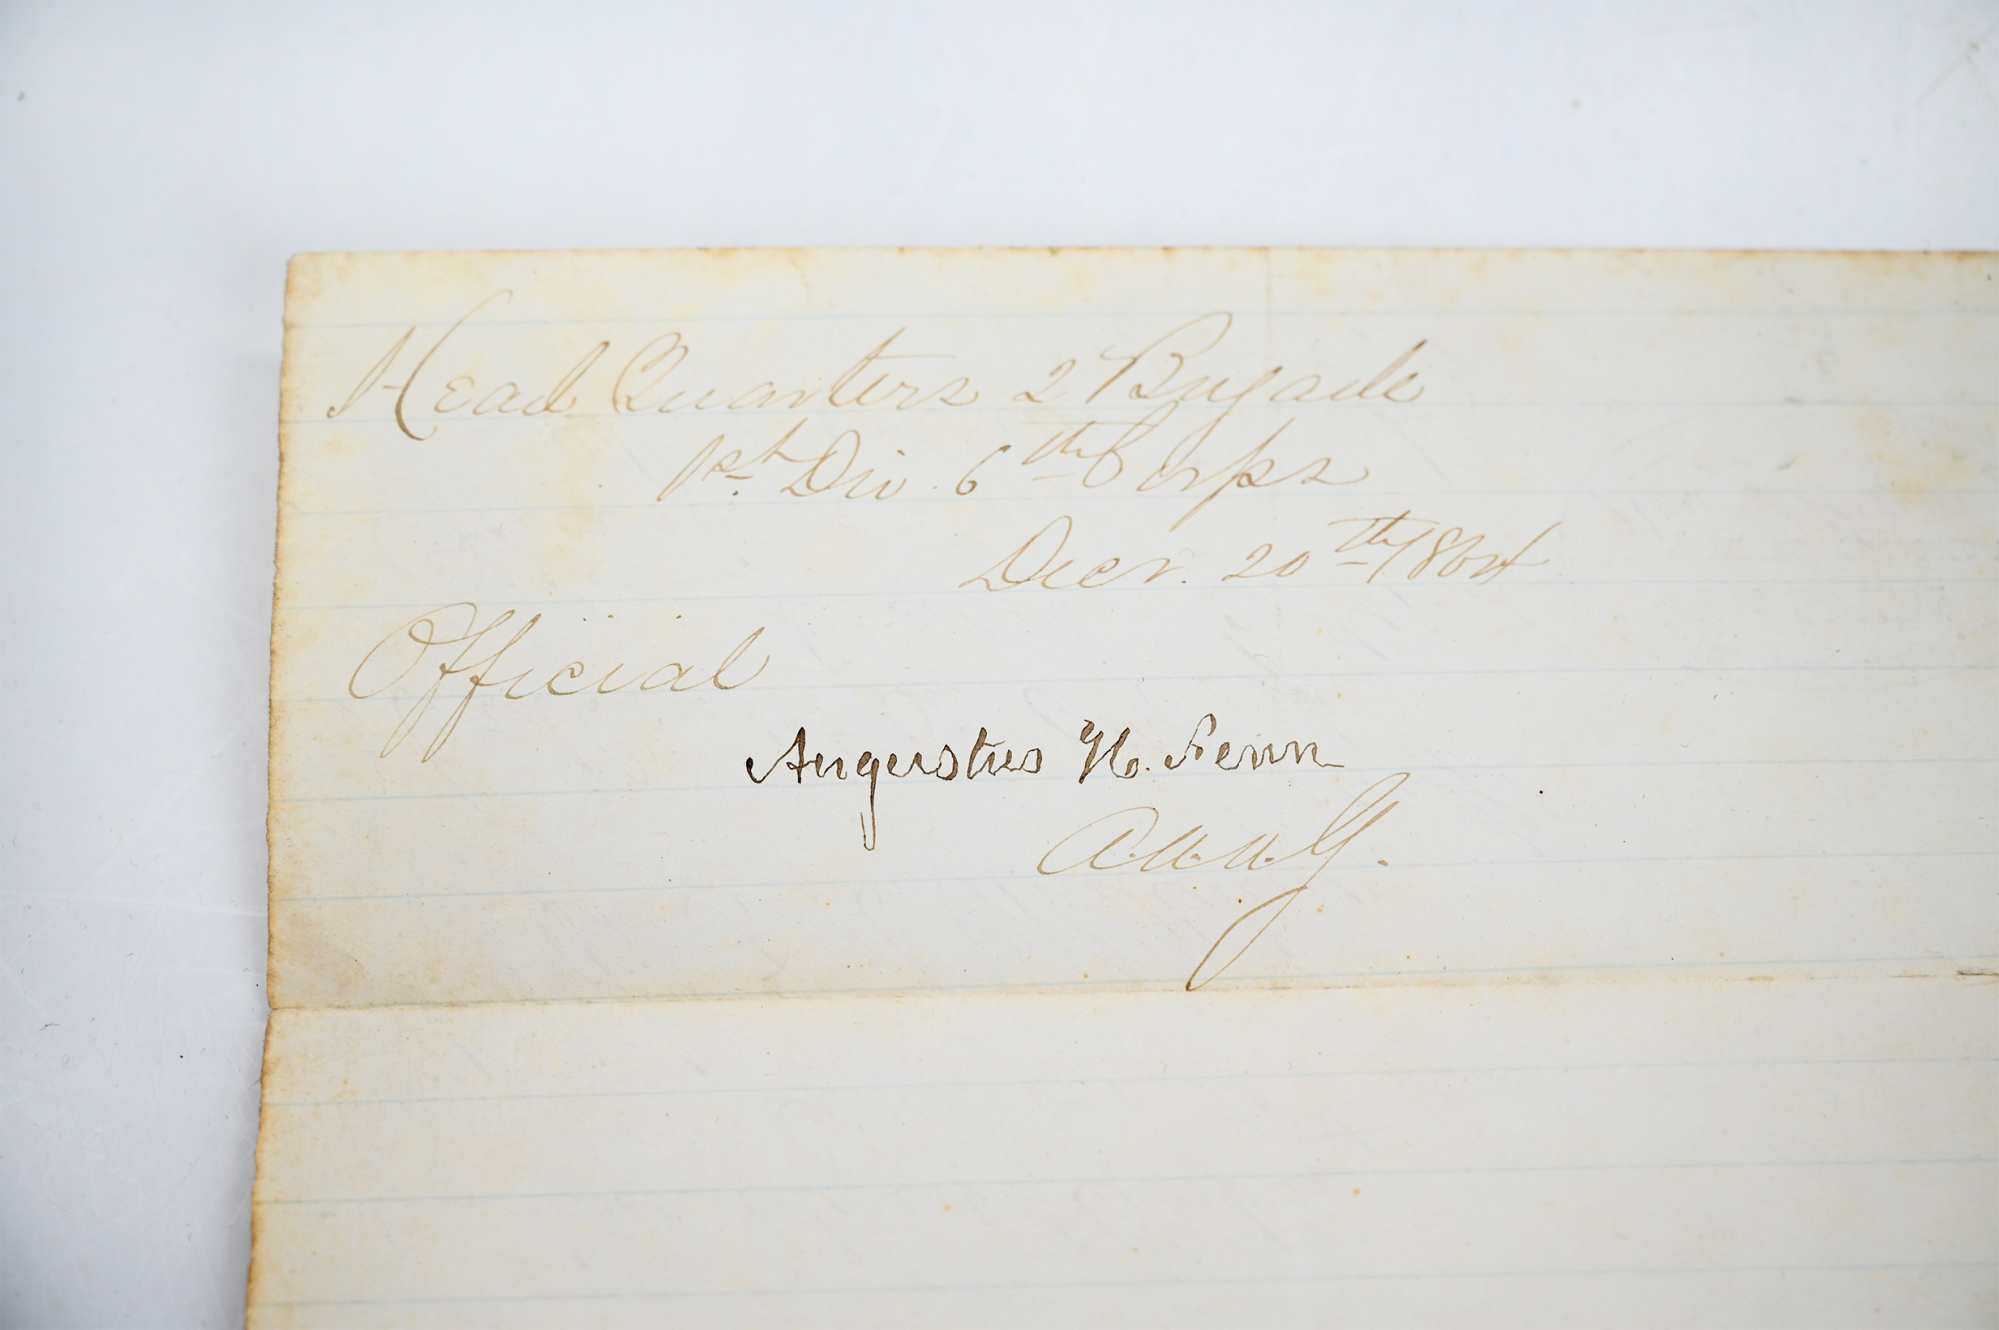 Head Quarters 2 Brigade
1st. Div. 6th Corps
Decr. 20th 1864
Official
Augustus H. Fenn
A.A.A.G.